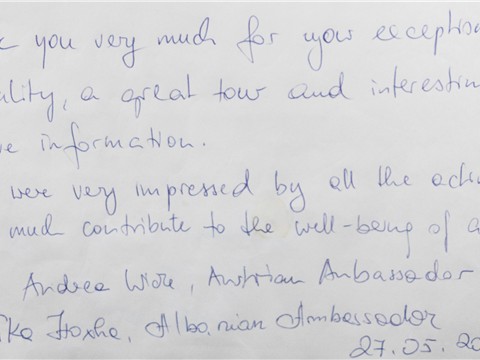 you very much for your exception
ality, a great tour and interestin
e information.
were very impressed by all the achi
much contribute to the well-being of a
Andrea Wicke, Austrian Ambassador
ika Hoxha, Albanian Ambassador
27.05.20